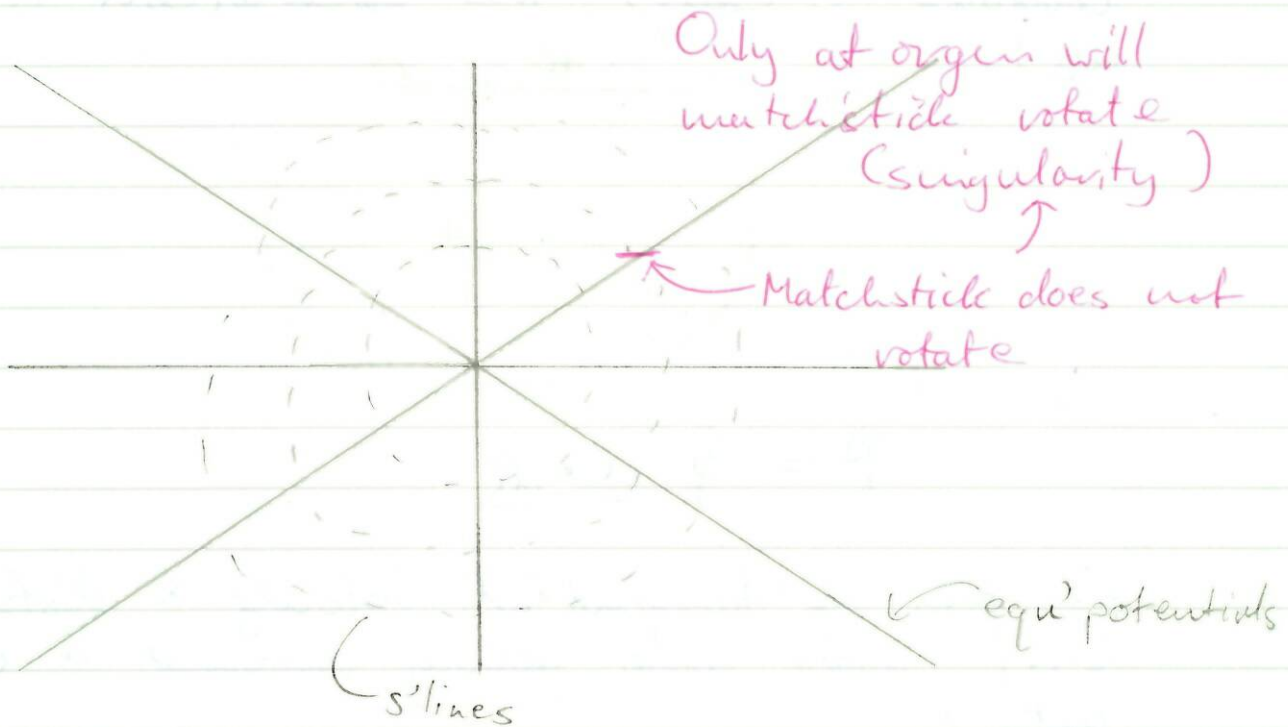 Only at orgin will
match'stick rotate
(singularity)
Matchstick does not
rotate
equ'potentials
s'lines